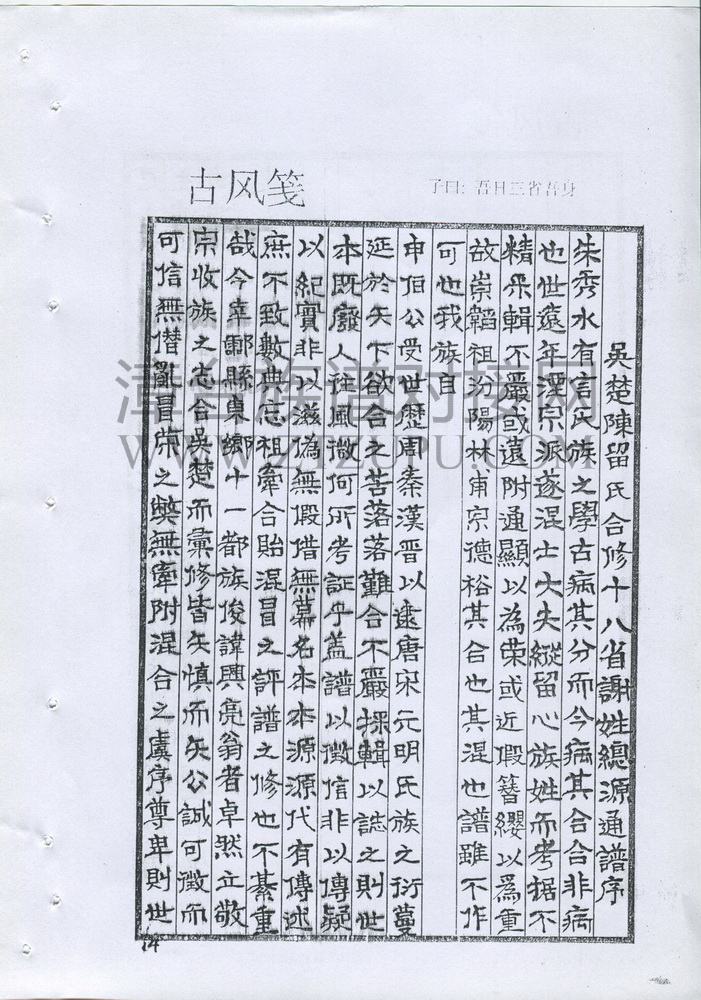 古风笺
子曰：吾日三省吾身
吳楚陳留氏合修十八省謝姓總源通譜序
朱秀水有言氏族之學古病其分而今病其合合非病
也世遠年湮宗派遂混士大夫縱留心族姓而考据不
精釆輯不嚴或遠附通顯以為荣或近假簪纓以爲重
故崇韜祖汾陽林甫宗德裕其合也其混也譜雖不作
可也我族自
申伯公受世歷周秦漢晋以逮唐宋元明氏族之衍蔓
延於天下欲合之苦落落難合不嚴採輯以誌之則世
本既廢人往風微何所考証乎盖譜以徵信非以傳疑
以紀實非以滋偽無假借無慕名本本源源代有傳述
庶不致數典忘祖牽合貽混冒之評譜之修也不綦重
哉今幸酃縣東鄉十一都族俊諱興亮翁者卓然立敬
宗收族之志合吳楚而彙修皆矢慎而矢公誠可徵而
可信無僣亂冒宗之獘無牽附混合之虞序尊卑則世
14
漳台族谱对接网
WWW.ZTZUPU.COM